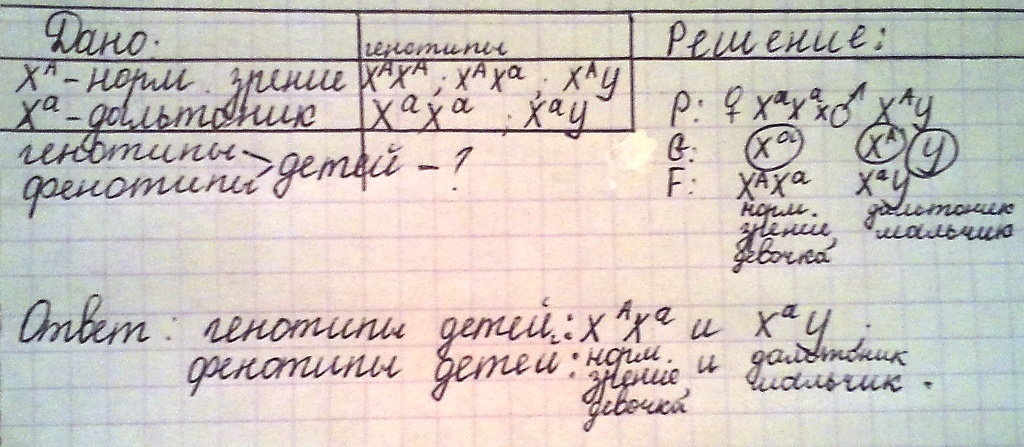 Дано: генотипы Решение:
X^A - норм. зрение X^AX^A; X^AX^a; X^AY
X^a - дальтоник X^aX^a; X^aY
P: ♀ X^aX^a x ♂ X^AY
генотипы > детей - ?
фенотипы
G: X^a X^A Y
F: X^AX^a X^aY
норм. зрение, девочка
дальтоник мальчик
Ответ: генотипы детей: X^AX^a и X^aY.
фенотипы детей: норм. зрение, девочка и дальтоник мальчик.